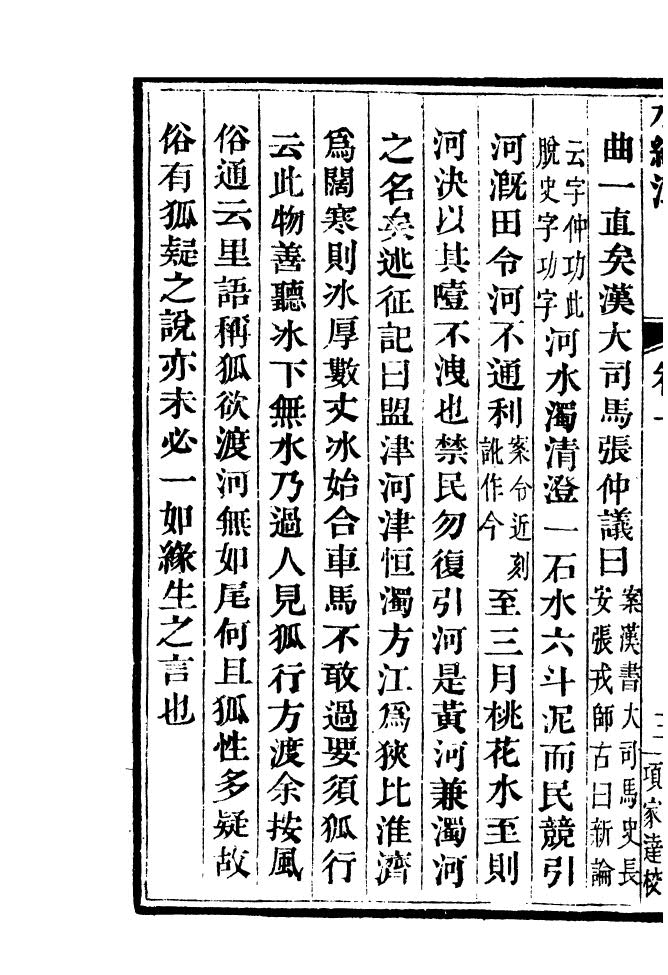 水經注 卷一 三 項家達校
曲一直矣漢大司馬張仲議曰案漢書大司馬史長安張戎師古曰新論
云字仲功此脫史字功字河水濁清澄一石水六斗泥而民競引
河溉田令河不通利案令近刻訛作今至三月桃花水至則
河決以其噎不洩也禁民勿復引河是黃河兼濁河
之名矣述征記曰盟津河津恒濁方江爲狹比淮濟
爲闊寒則冰厚數丈冰始合車馬不敢過要須狐行
云此物善聽冰下無水乃過人見狐行方渡余按風
俗通云里語稱狐欲渡河無如尾何且狐性多疑故
俗有狐疑之說亦未必一如緣生之言也